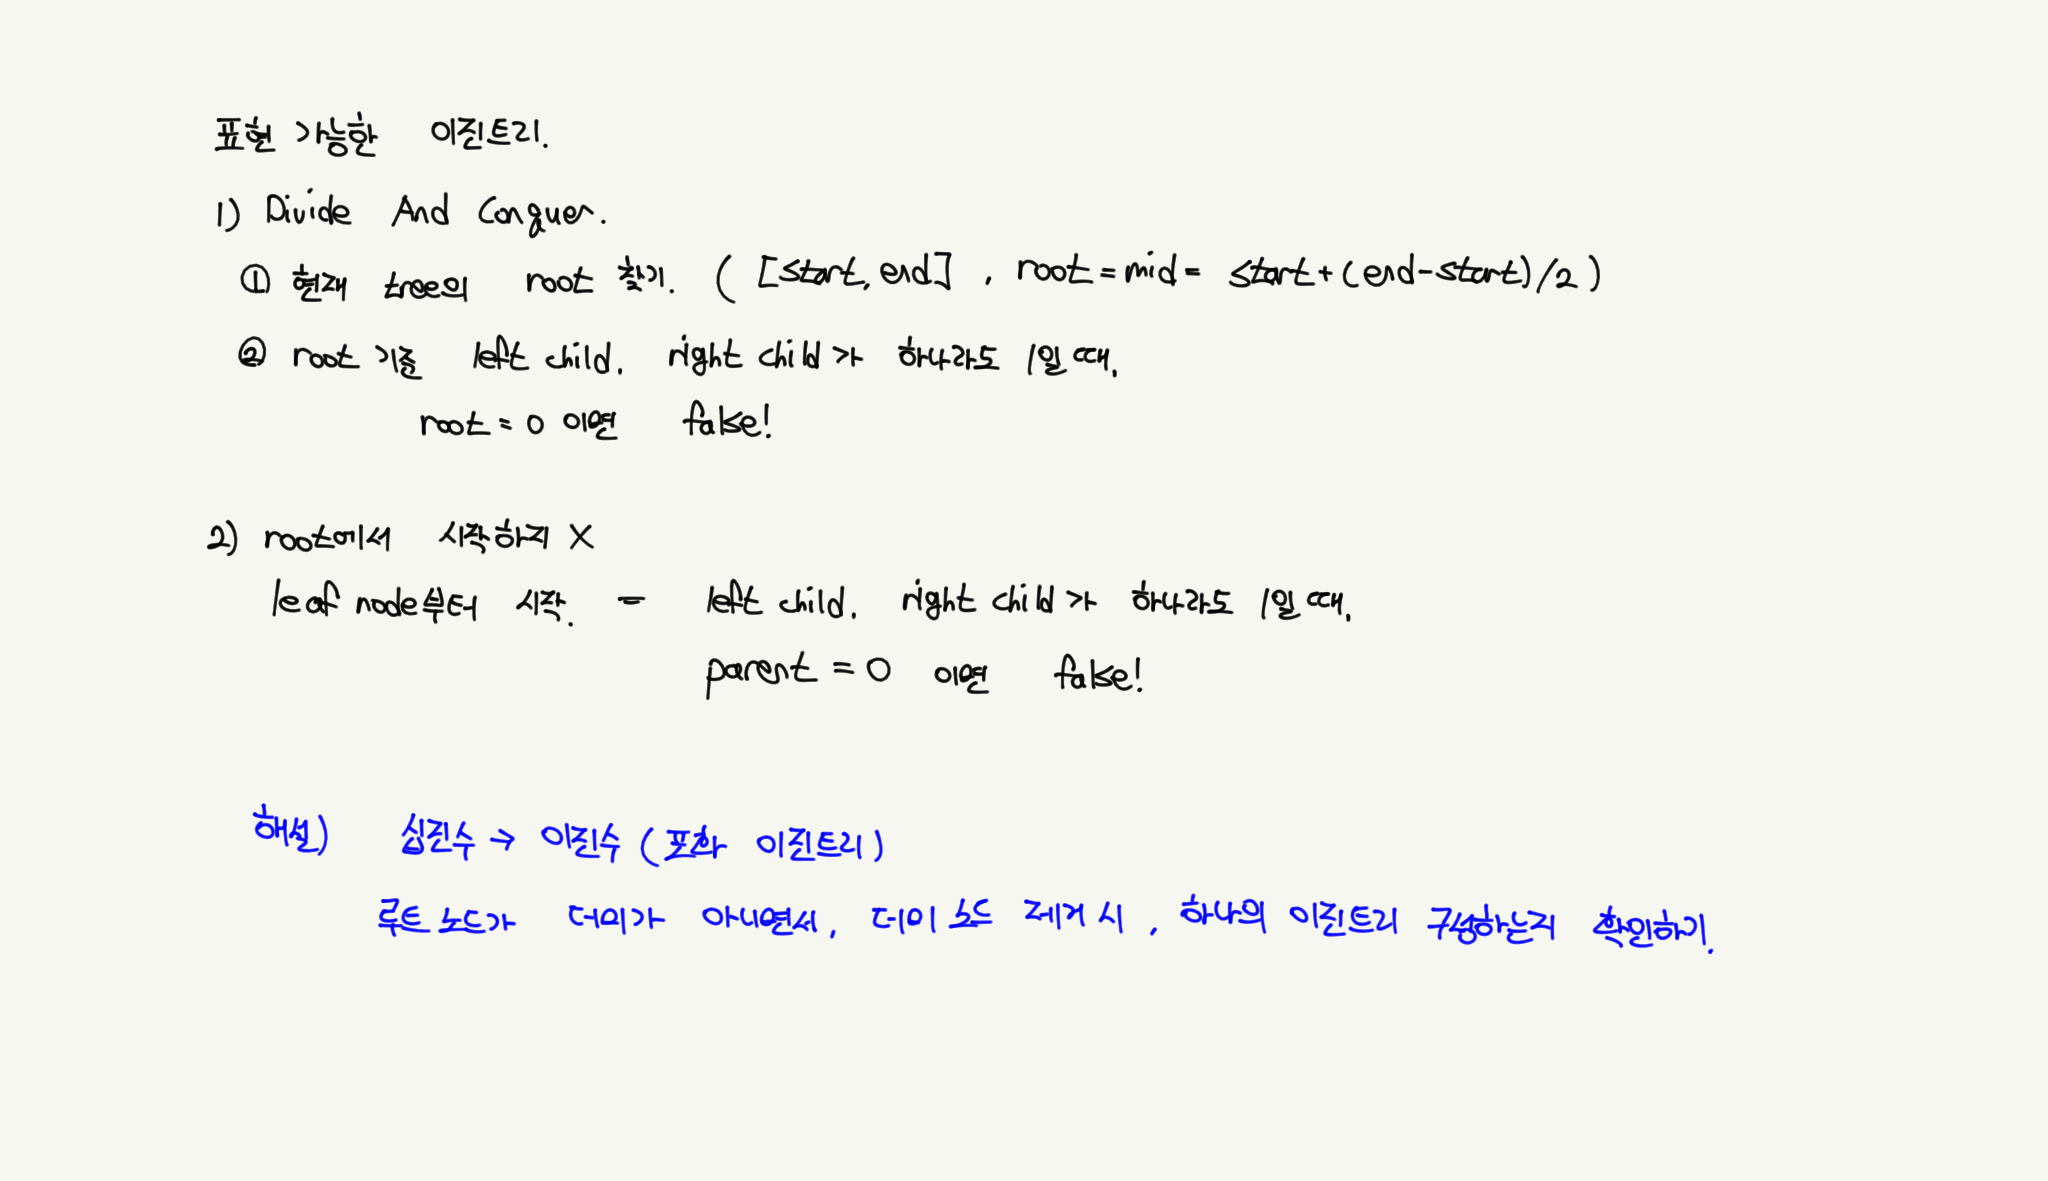 표현 가능한 이진트리.
1) Divide And Conquer.
① 현재 tree의 root 찾기. ( [start, end] , root = mid = start + (end-start)/2 )
② root 기준 left child. right child가 하나라도 1일 때,
root = 0 이면 false!
2) root에서 시작하지 X
leaf node부터 시작. - left child. right child가 하나라도 1일 때,
parent = 0 이면 false!
해설) 십진수 → 이진수 (포화 이진트리)
루트 노드가 더미가 아니면서, 더미 노드 제거 시, 하나의 이진트리 구성하는지 확인하기.